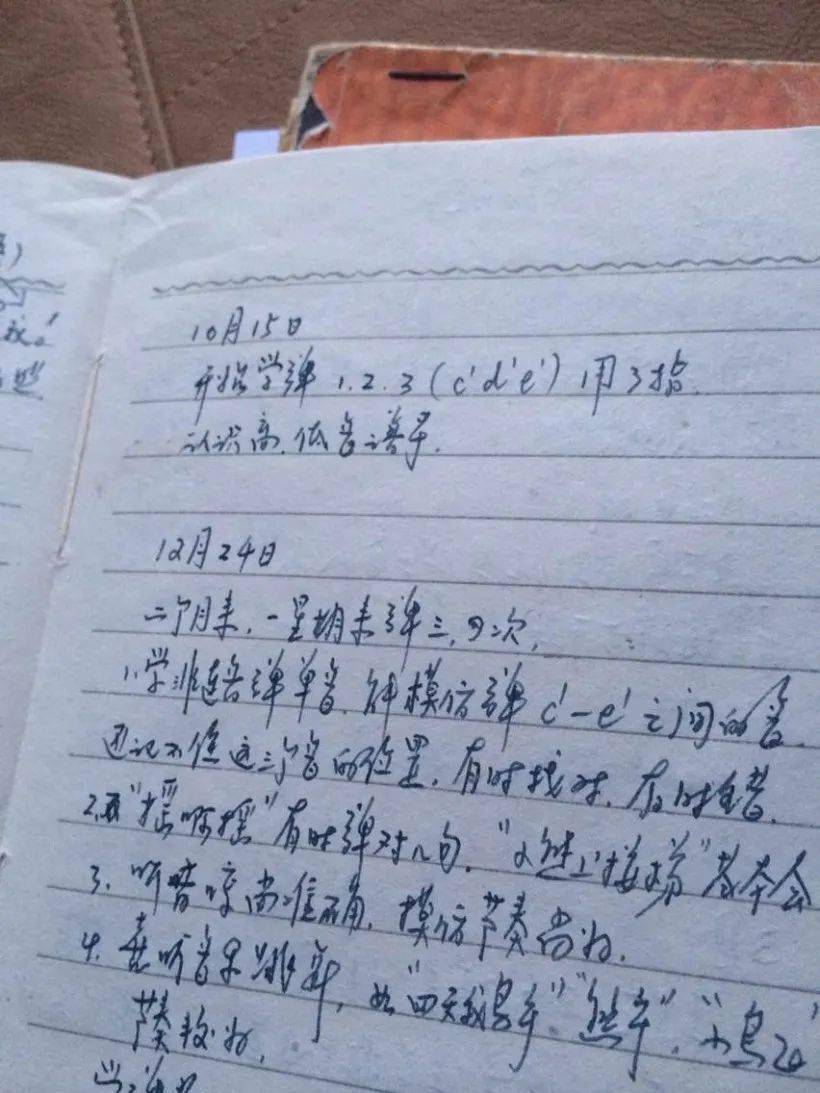 我!
10月15日
开始学弹 1.2.3 (c' d' e') 用3指.
认识高.低音谱号.
12月24日
二个月来,一星期来弹三,四次,
1.学非连音弹单音.能模仿弹 c'—e' 之间的音.
还记不住这三个音的位置.有时找对.有时错.
2. "摇啊摇"有时弹对几句. 基本会
3. 听音尚准确.模仿节奏尚好.
4. 喜听音乐跳舞, 如 "小鸟飞"
节奏较好.